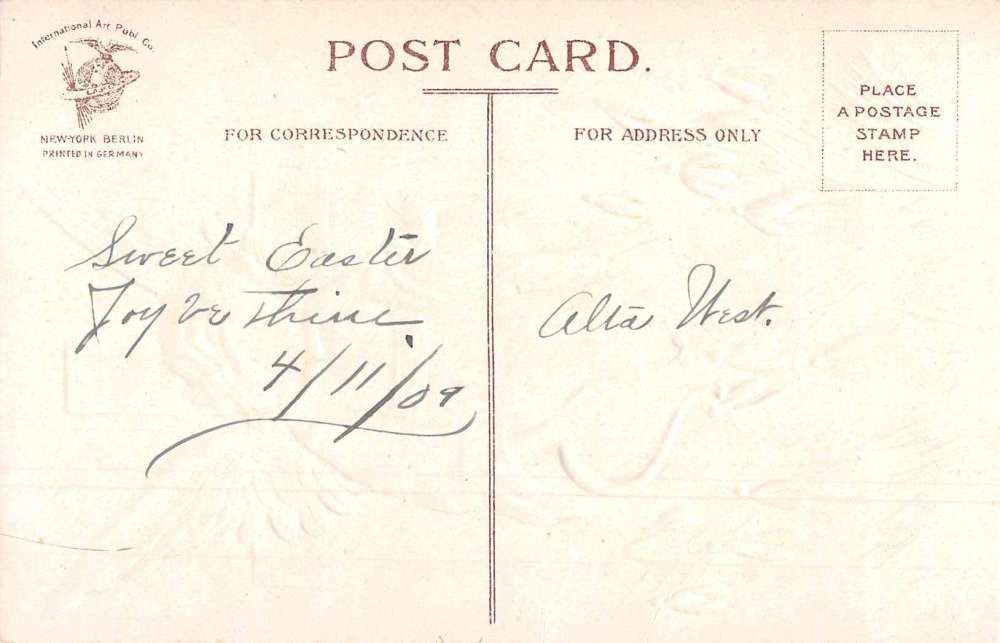 International Art Publ. Co.
NEW-YORK BERLIN
PRINTED IN GERMANY
POST CARD.
FOR CORRESPONDENCE
FOR ADDRESS ONLY
PLACE
A POSTAGE
STAMP
HERE.
Sweet Easter
Joy be Thine.
4/11/09
Alta West.